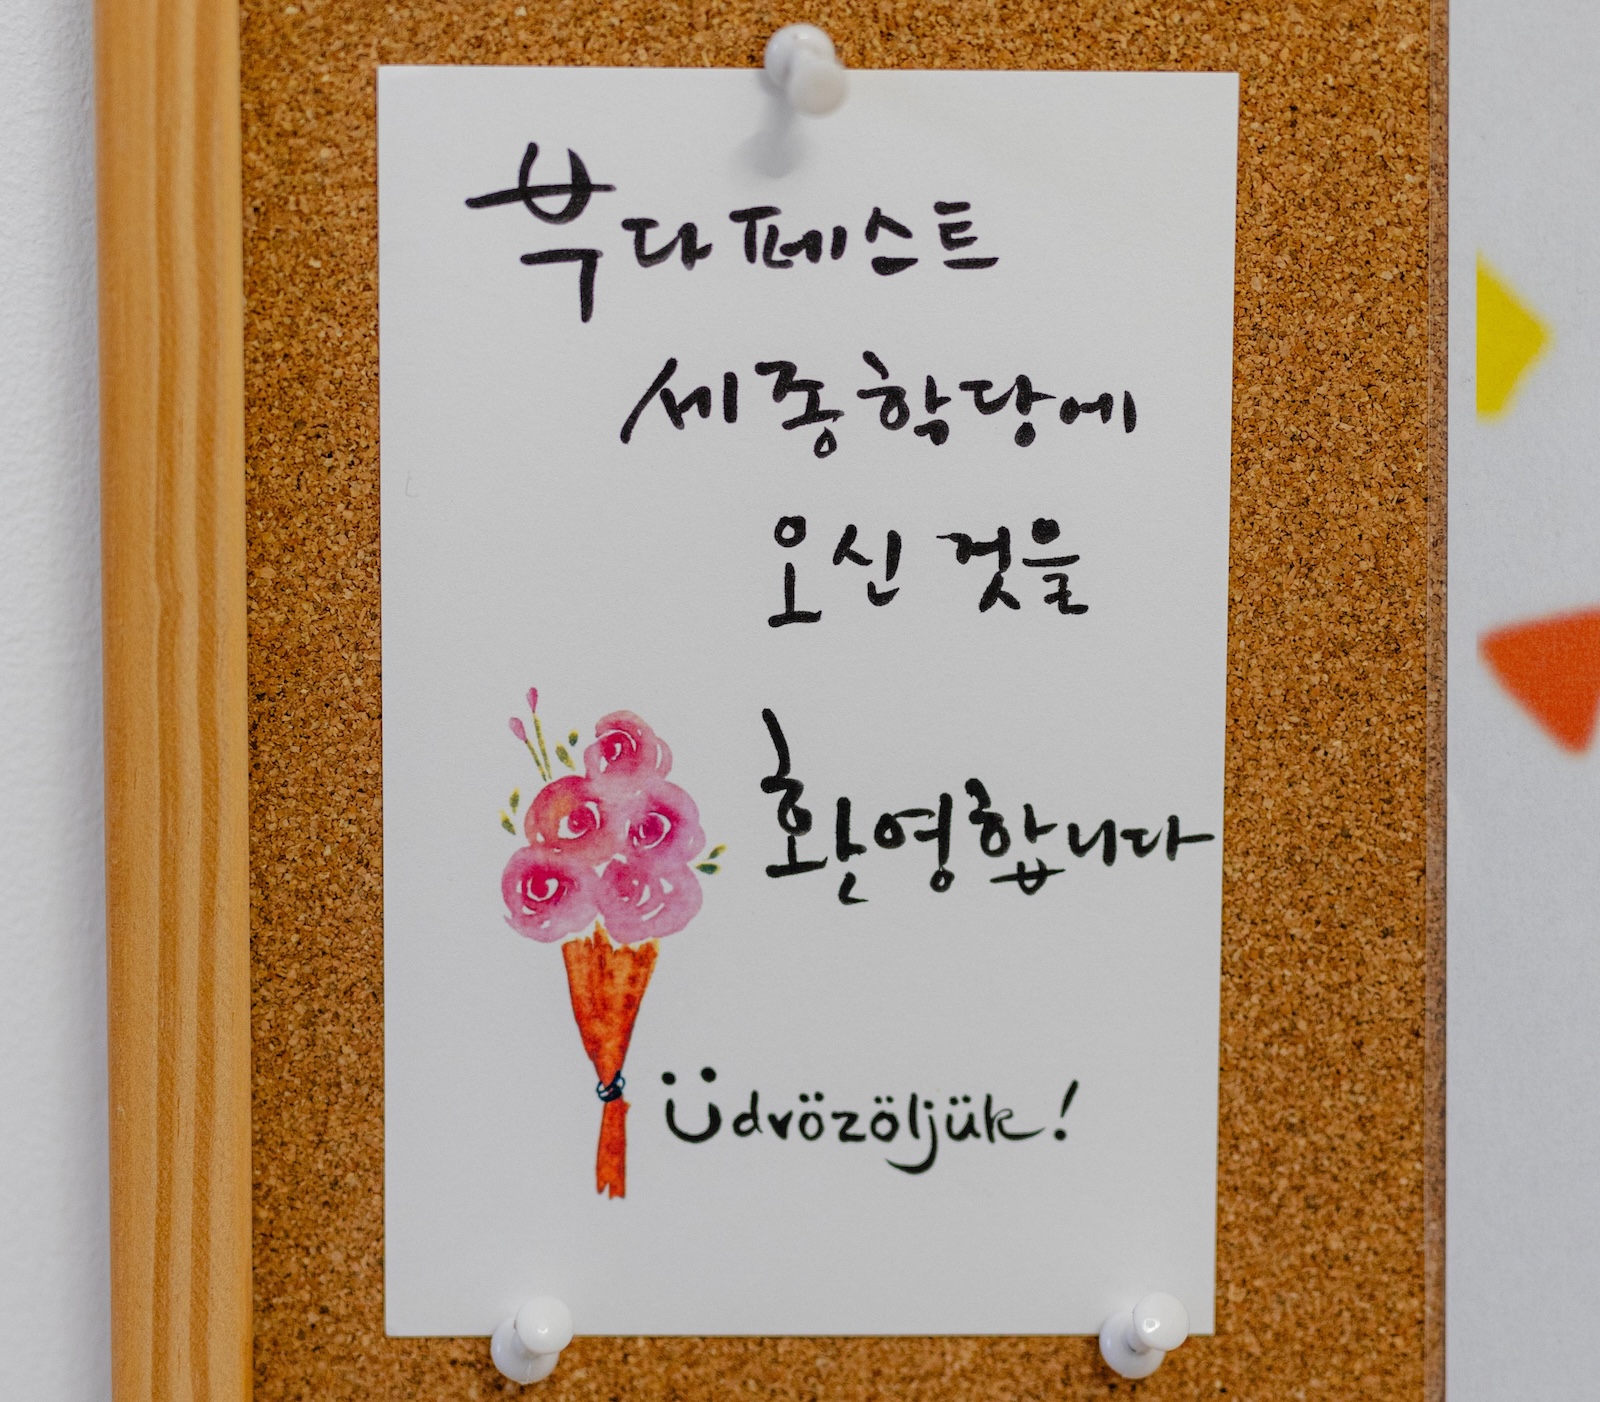 부다페스트
세종학당에
오신 것을
환영합니다
Üdvözöljük!